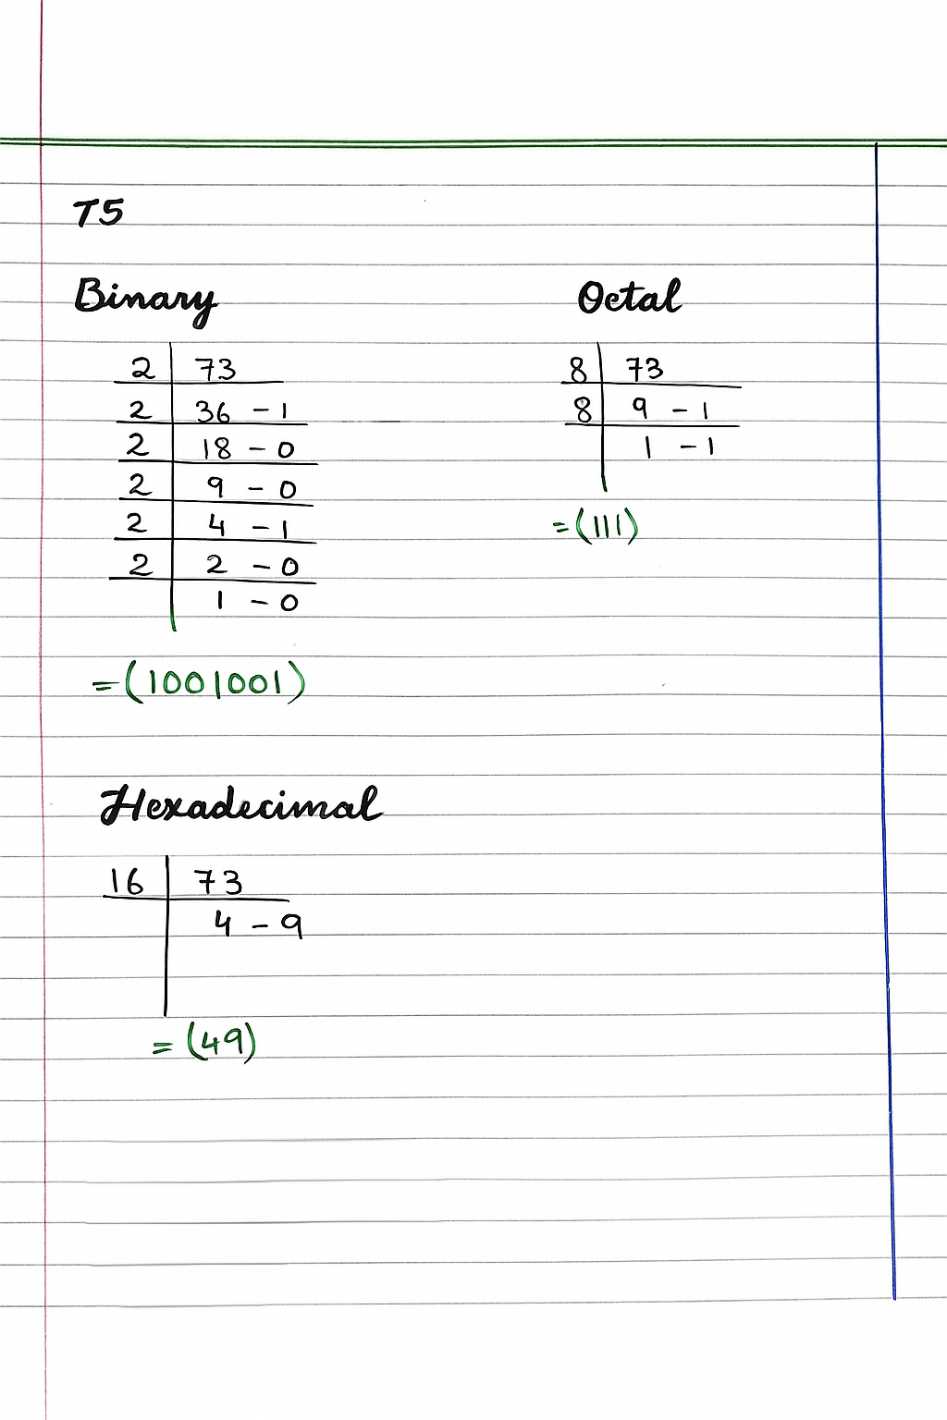 T5
Binary
2 73
2 36 - 1
2 18 - 0
2 9 - 0
2 4 - 1
2 2 - 0
1 - 0
= (1001001)
Octal
8 73
8 9 - 1
1 - 1
= (111)
Hexadecimal
16 73
4 - 9
= (49)